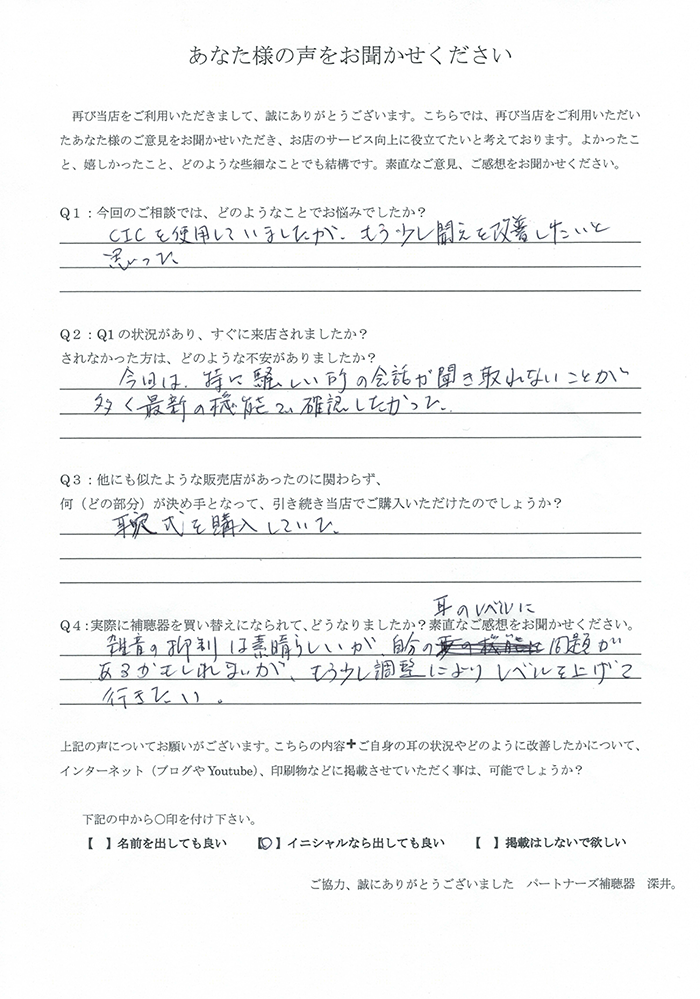 あなた様の声をお聞かせください
再び当店をご利用いただきまして、誠にありがとうございます。こちらでは、再び当店をご利用いただい
たあなた様のご意見をお聞かせいただき、お店のサービス向上に役立てたいと考えております。よかったこ
と、嬉しかったこと、どのような些細なことでも結構です。素直なご意見、ご感想をお聞かせください。
Q1：今回のご相談では、どのようなことでお悩みでしたか？
CICを使用していましたが、もう少し聞えを改善したいと
思った
Q2：Q1の状況があり、すぐに来店されましたか？
されなかった方は、どのような不安がありましたか？
今回は、特に騒しい所の会話が聞き取れないことが
多く最新の機能で確認したかった。
Q3：他にも似たような販売店があったのに関わらず、
何（どの部分）が決め手となって、引き続き当店でご購入いただけたのでしょうか？
式を購入していた。
Q4：実際に補聴器を買い替えになられて、どうなりましたか？素直なご感想をお聞かせください。
耳のレベルに
雑音の抑制は素晴らしいが、自分の問題が
あるかもしれないが、もう少し調整によりレベルを上げて
行きたい。
上記の声についてお願いがございます。こちらの内容＋ご自身の耳の状況やどのように改善したかについて、
インターネット（ブログやYoutube）、印刷物などに掲載させていただく事は、可能でしょうか？
下記の中から〇印を付け下さい。
【　】名前を出しても良い　【〇】イニシャルなら出しても良い　【　】掲載はしないで欲しい
ご協力、誠にありがとうございました　パートナーズ補聴器　深井。